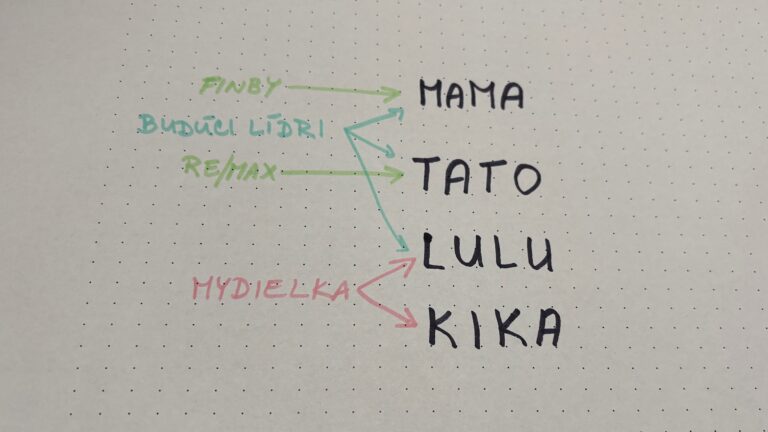 FINBY
MAMA
BUDÚCI LÍDRI
RE/MAX
TATO
LULU
MYDIELKA
KIKA